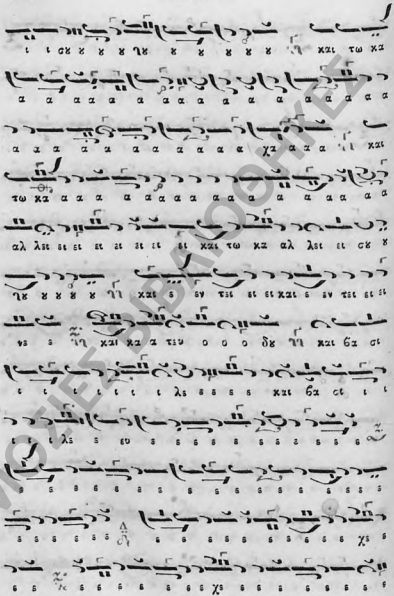 ι ι σȣ ȣ ȣ ȣ ηȣ ȣ ȣ ȣ ȣ και τω κα
α α α α α α α α α α α α α α α
α α α α α α α α α α χα α α α και
τω κα α α α α α α α α α α α α α α
αλ λει ει ει ει ει ει ει και τω κα αλ λει ει σȣ ȣ
ηȣ ȣ ȣ ȣ ȣ και ε εν τει ει ει και ε εν τει ει ει
νε ε και κα α τευ ο ο ο δȣ και βα σι
ι ι ι ι ι ι λε ε ε ε ε και βα σι ι ι
ι ι ι λε ε ευ ε ε ε ε ε ε ε ε ε ε
ε ε ε ε ε ε ε ε ε ε ε ε ε ε ε ε
ε ε ε ε ε ε ε ε ε ε ε ε ε ε χε ε
ε ε ε ε ε ε ε ε ε χε ε ε ε ε ε ε ε
ΜΟΣΙΕΣ ΒΙΒΛΙΟΘΗΚΕΣ